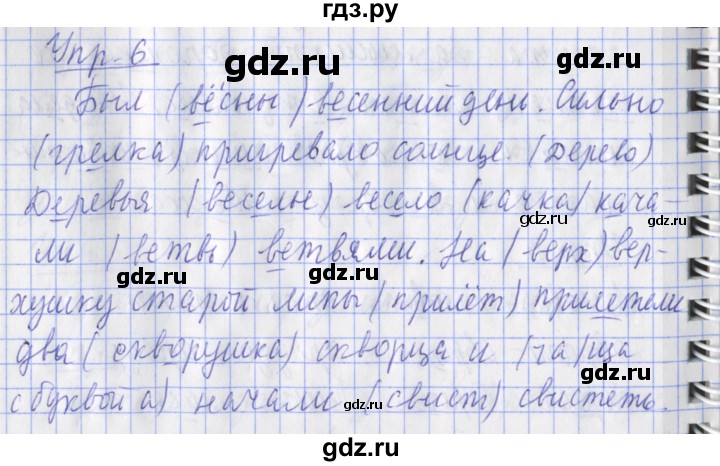 гдз.ру
Упр. 6
gdz.ru gdz.ru
Был (вёсны) весенний день. Сильно
(грелка) пригревало солнце. (Дерево)
gdz.ru
Деревья (веселье) весело (качка) кача-
gdz.ru
ли (ветвь) ветвями. На (верх) вер-
gdz.ru gdz.ru
хушку старой липы (прилёт) прилетели
gdz.ru
два (скворушка) скворца и (ча/ща
gdz.ru
с буквой а) начали (свист) свистеть.
gdz.ru gdz.ru
gdz.ru